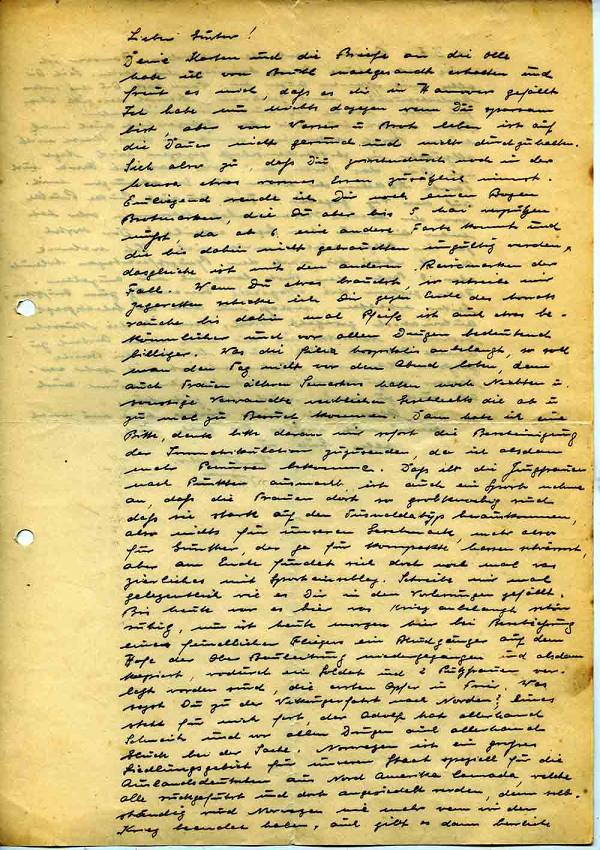 Lieber Günter!
Deine Karten und die Briefe an die Olle
habe ich von Brühl nachgesandt erhalten und
freut es mich, daß es dir in Hannover gefällt.
Ich habe nun nichts dagegen wenn Du sparsam
bist, aber von Wasser u. Brot leben ist auf
die Dauer nicht gesund und nicht durchzuhalten.
Sieh also zu, daß Du zwischendurch noch in der
etwas warmes Essen zusätzlich nimmst.
Einliegend sende ich Dir noch einen Bogen
Brotmarken, die Du aber bis 5 Mai
mußt, da ab 6. eine andere Farbe kommt und
die bis dahin nicht gebrauchten ungültig werden,
dasgleiche ist mit den anderen Reisemarken der
Fall. Wenn Du etwas brauchst, so schreibe mir
Zigaretten schicke ich Dir gegen Ende des Monats
rauche bis dahin mal Pfeife ist auch etwas be-
kömmlicher und vor allen Dingen bedeutend
billiger. Was die filia hospitalis anbelangt, so soll
man den Tag nicht vor dem Abend loben, denn
auch Frauen älteren Semesters haben noch Nichten u.
sonstige Verwandte weiblichen Geschlechts die ab u.
zu mal zu Besuch kommen. Dann habe ich eine
Bitte, denke bitte daran mir sofort die Bescheinigung
der Immatrikulation zuzusenden, da ich alsdann
mehr bekomme. Daß ihr die Jungfrauen
nach Punkten ausmacht, ist auch ein Sport nehme
an, daß die Frauen dort so grobknochig sind
daß sie stark auf den Thusneldatyp herauskommen,
also nichts für unseren Geschmack, mehr also
für Günther, der ja für kompakte schwärmt,
aber am Ende findet sich doch noch mal was
zierliches mit Sporteinschlag. Schreibe mir mal
gelegentlich wie es Dir in den Vorlesungen gefällt.
Bis heute war es hier was Krieg anbelangt schön
ruhig, nur ist heute morgen hier bei Beschießung
eines feindlichen Fliegers ein Blindgänger auf dem
Hofe der Obe Bauleitung niedergegangen und alsdann
krepiert, wodurch ein Soldat und 2 Putzfrauen ver-
letzt worden sind, die ersten Opfer in Trier. Was
sagst Du zu der Wikingerfahrt nach Norden? Eines
steht für mich fest, der Adolf hat allerhand
Schneid und vor allen Dingen auch allerhand
Glück bei der Sache. Norwegen ist ein großes
Siedlungsgebiet für unseren Staat speziell für die
Auslandsdeutschen aus Nord Amerika Canada, welche
alle rückgeführt und dort angesiedelt werden, denn selb-
ständig wird Norwegen nie mehr wenn wir den
Krieg beendet haben, auch gibt es dann herrliche